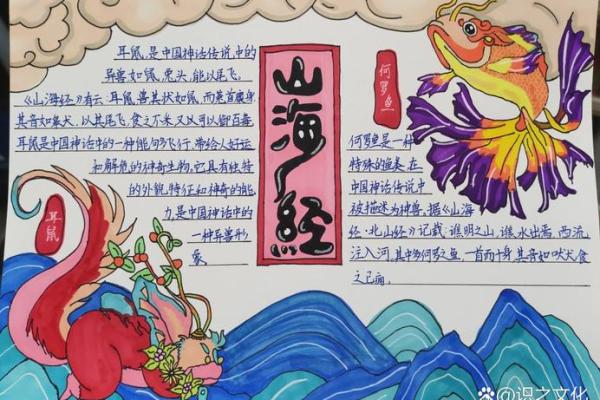 耳鼠，是中国神话传说中的
异兽如鼠，兔头，能以尾飞。
《山海经》有云：耳鼠，兽其状如鼠，而菟首麋身
其音如嗥犬，以其尾飞，食之不采，又可以御百毒
耳鼠是中国神话中的一种能向飞行，带给人好运
和解危的神奇生物，它具有独特
的外貌，特征和神奇的能
力，是中国神话中的
一种异兽形
象
耳鼠
山海经
何罗鱼
何罗鱼是一种
特殊的鱼类，在
中国神话传说中
被描述为神兽，据《山海
经·北山经》记载，谯明之山，谯水出焉，西流
注入河，其中多何罗之鱼，一首而十身，其音如吠犬，食
之已痈，
@识之文化